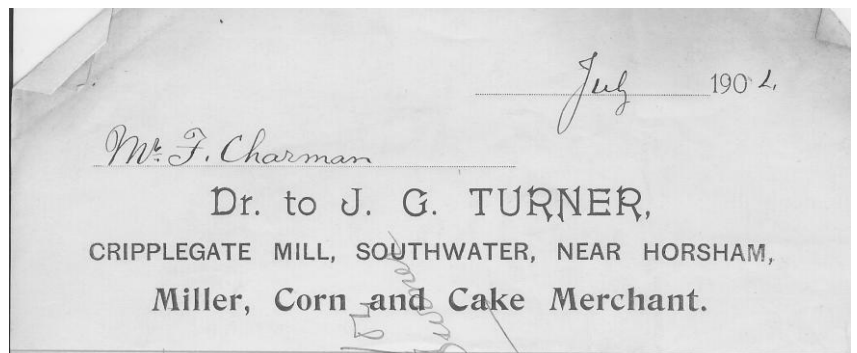 July 1902.
Mr. F. Charman
Dr. to J. G. TURNER,
CRIPPLEGATE MILL, SOUTHWATER, NEAR HORSHAM,
Miller, Corn and Cake Merchant.